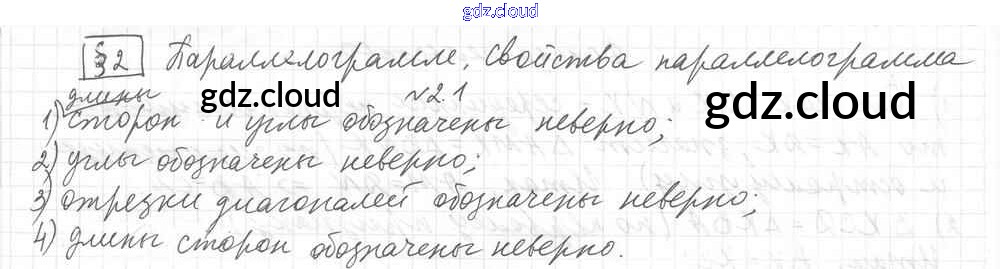 gdz.cloud
§2 Параллелограмм. Свойства параллелограмма
gdz.cloud
№2.1
gdz.cloud
длины
1) сторон и углы обозначены неверно;
2) углы обозначены неверно;
3) отрезки диагоналей обозначены неверно;
4) длины сторон обозначены неверно.